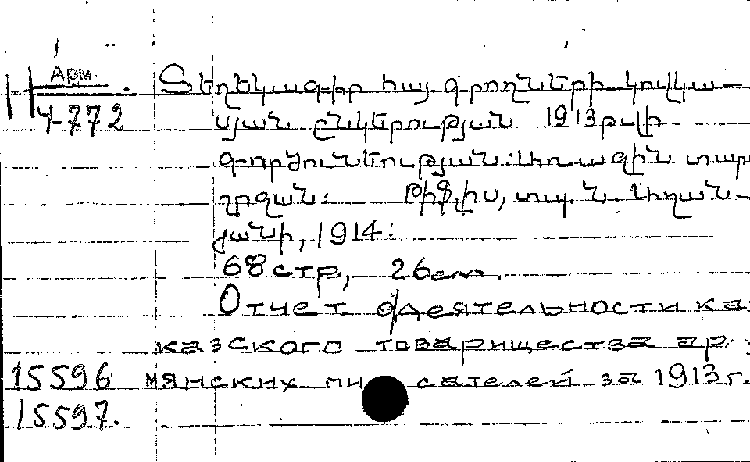 Арм.
4-772
Տեղեկագիր հայ գրողների կովկա-
սյան ընկերության 1913թ-լի
գործունեության: Առաջին տար
շրջան: Թիֆլիս, տպ. Ն. Աղան-
յանի, 1914:
68 стр., 26 см.
Отчет о деятельности ка
казского товарищества ар
15596 мянских писателей за 1913 г.
15597.